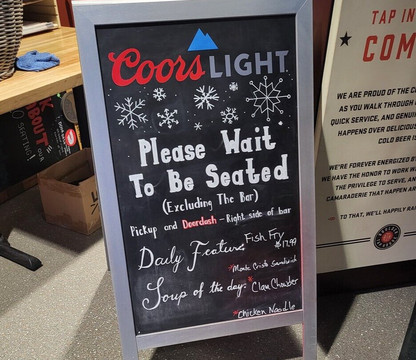 Coors LIGHT
Please Wait
To Be Seated
(Excluding The Bar)
Pickup and Doordash - Right side of bar
Daily Feature
Fish Fry
$17.99
*Monte Cristo Sandwich
Soup of the day:
*Clam Chowder
*Chicken Noodle
TAP IN
COM
WE ARE PROUD OF THE
AS YOU WALK THROUGH
QUICK SERVICE, AND GENUIN
HAPPENS OVER DELICIOU
COLD BEER
WE'RE FOREVER ENERGIZED
WE HAVE THE HONOR TO WORK WI
THE PRIVILEGE TO SERVE, AN
CAMARADERIE THAT HAPPEN
TO THAT, WE'LL HAPPILY RA
ABOUT